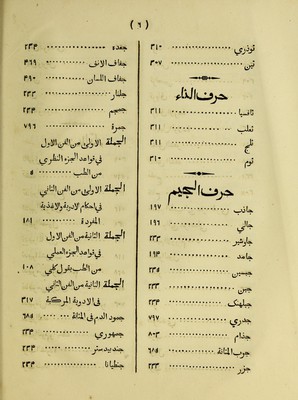 ( ٦ )
توذري ٣١٠
تين ٣٠٧
حرف الثاء
ثافسيا ٣١١
ثعلب ٣١١
ثلج ٣١١
ثوم ٣١٠
حرف الجيم
جاذب ١٩٧
جالي ١٩٦
جاوشير ٢٣٣
جامد ١٩٤
جبسين ٢٣٥
جبن ٢٣٣
جبلهنك ٢٣٤
جدري ٧٩٧
جذام ٨٠٣
جرب المثانة ٦٨٥
جزر ٢٣٣
جعده ٢٣٤
جفاف الانف ٤٦٩
جفاف اللسان ٤٩٠
جلنار ٢٣٣
جمجم ٢٣٤
جمرة ٧٩٦
الجملة الاولى من الفن الاول
في قواعد الجزء النظري
من الطب ٥
الجملة الاولى من الفن الثاني
في احكام لادوية والاغذية
المفردة ١٨١
الجملة الثانية من الفن الاول
في قواعد الجزء العملي
من الطب بقول كلي ١٠٨
الجملة الثانية من الفن الثاني
في الادوية المركبة ٣١٧
جمود الدم في المثانة ٦٨٥
جمهوري ٢٣٤
جندبيدستر ٢٣٤
جنطيانا ٢٣٤